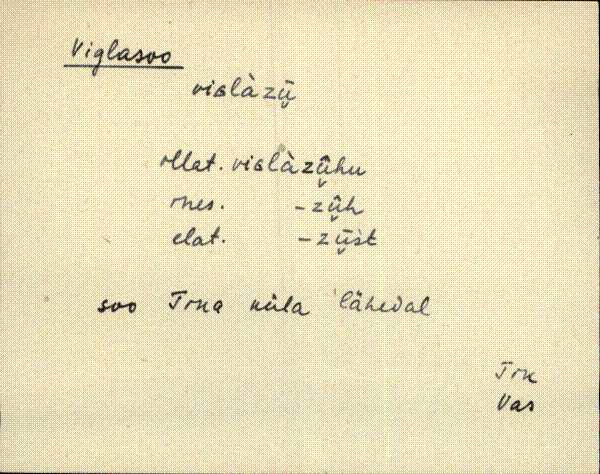 Viglasoo
viɢlàzū̮
illat. viɢlàzū̮hu
ines. -zū̮h
elat. -zū̮st
soo Trka küla lähedal
Trk
Vas